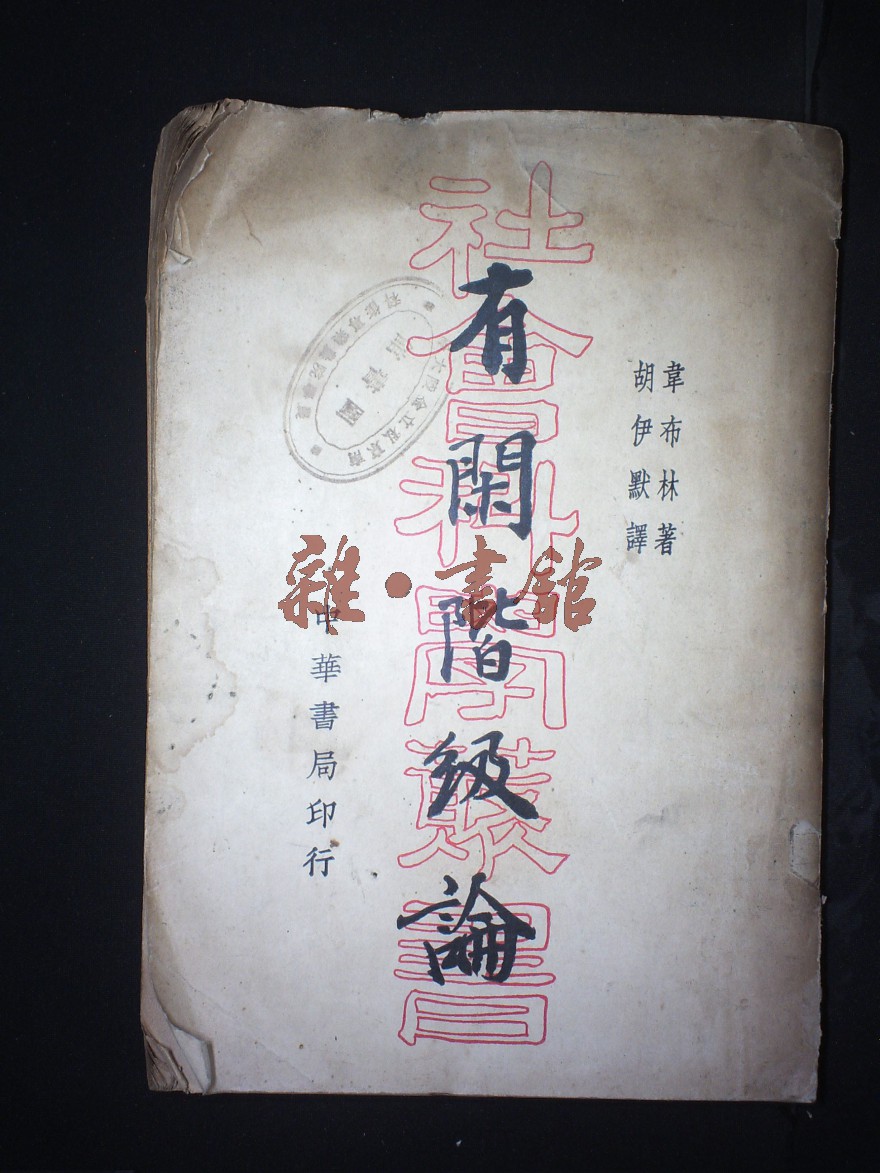 韋布林著
胡伊默譯
有閑階級論
社會科學叢書
中華書局印行
雜·書館
圖書館